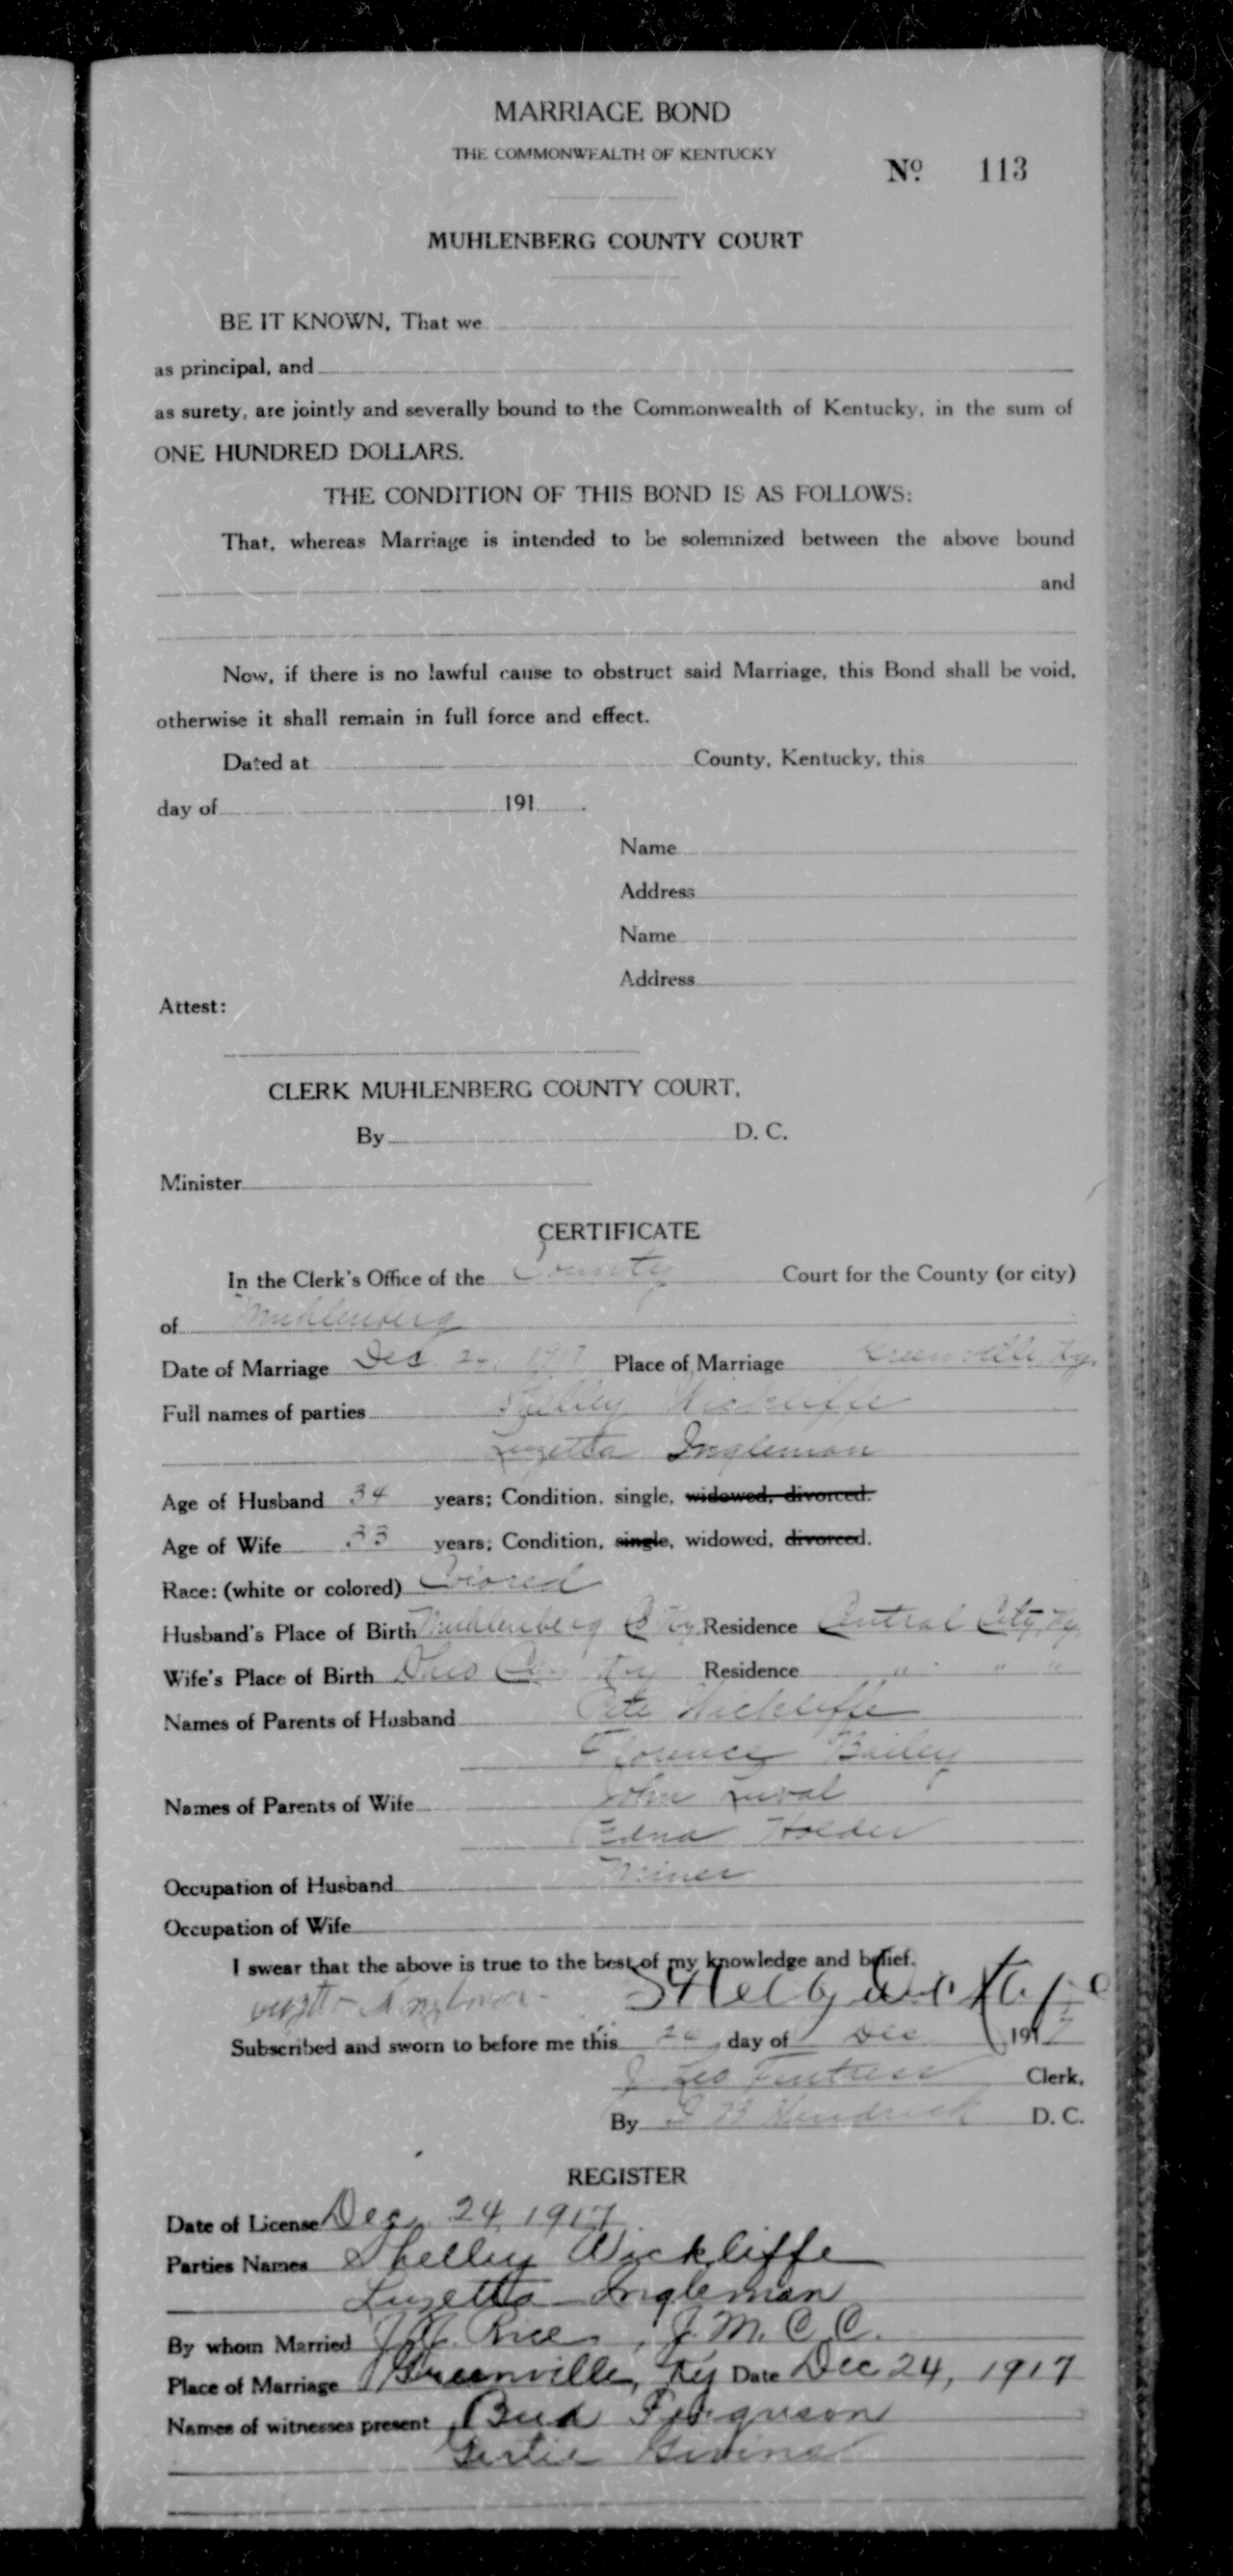 MARRIAGE BOND
THE COMMONWEALTH OF KENTUCKY
No. 113
MUHLENBERG COUNTY COURT
BE IT KNOWN, That we
as principal, and
as surety, are jointly and severally bound to the Commonwealth of Kentucky, in the sum of
ONE HUNDRED DOLLARS.
THE CONDITION OF THIS BOND IS AS FOLLOWS:
That, whereas Marriage is intended to be solemnized between the above bound
and
Now, if there is no lawful cause to obstruct said Marriage, this Bond shall be void,
otherwise it shall remain in full force and effect.
Dated at County, Kentucky, this
day of 191 .
Name
Address
Name
Address
Attest:
CLERK MUHLENBERG COUNTY COURT,
By D. C.
Minister
CERTIFICATE
In the Clerk's Office of the County Court for the County (or city)
of Muhlenberg
Date of Marriage Dec 24, 1917 Place of Marriage Greenville Ky.
Full names of parties Shelley Wickliffe
Luzetta Ingleman
Age of Husband 34 years; Condition, single, widowed, divorced.
Age of Wife 33 years; Condition, single, widowed, divorced.
Race: (white or colored) Colored
Husband's Place of Birth Muhlenberg Co Ky Residence Central City, Ky
Wife's Place of Birth Ohio Co. Ky Residence " " "
Names of Parents of Husband Pete Wickliffe
Florence Bailey
Names of Parents of Wife John
Edna Holder
Occupation of Husband Miner
Occupation of Wife
I swear that the above is true to the best of my knowledge and belief.
Subscribed and sworn to before me this 24 day of Dec 1917
J. Leo Fentress Clerk,
By Hendrick D. C.
REGISTER
Date of License Dec. 24, 1917
Parties Names Shelley Wickliffe
Luzetta Ingleman
By whom Married Rice, J. M. C. C.
Place of Marriage Greenville, Ky Date Dec 24, 1917
Names of witnesses present Bud Ferguson
Gertie